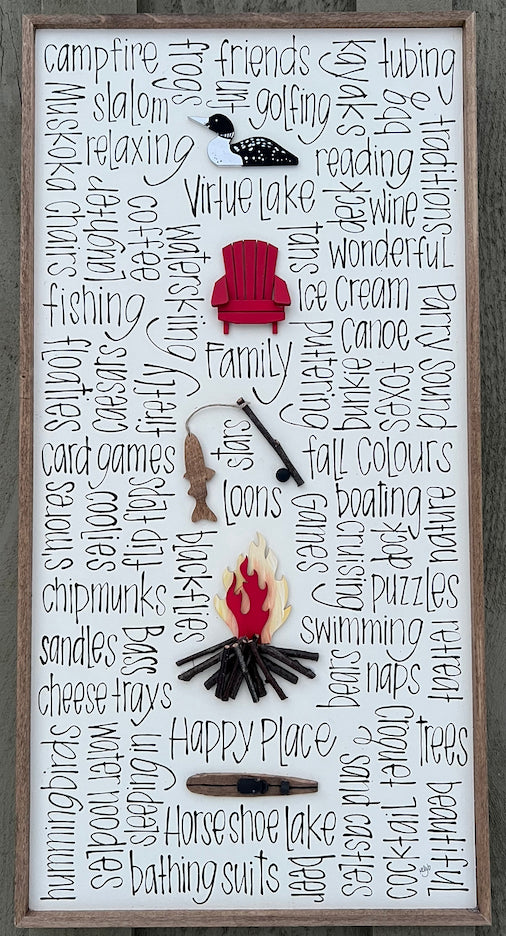 campfire
frogs
friends
kayaks
tubing
slalom
fun
golfing
bbq
Muskoka chairs
relaxing
reading
traditions
Virtue Lake
deck
wine
laughter
coffee
waterskiing
tans
wonderful
Ice Cream
fishing
canoe
Parry Sound
Family
puttering
floaties
caesars
firefly
bunkie
foxes
stars
card games
fall colours
Loons
Games
boating
nature
serious
coolies
flip flops
blackflies
cruising
dock
chipmunks
puzzles
swimming
retreat
sandles
Bass
bears
naps
cheese trays
Happy Place
trees
hummingbirds
water noodles
unplugged
sand castles
beautiful
Horseshoe Lake
bathing suits
beer